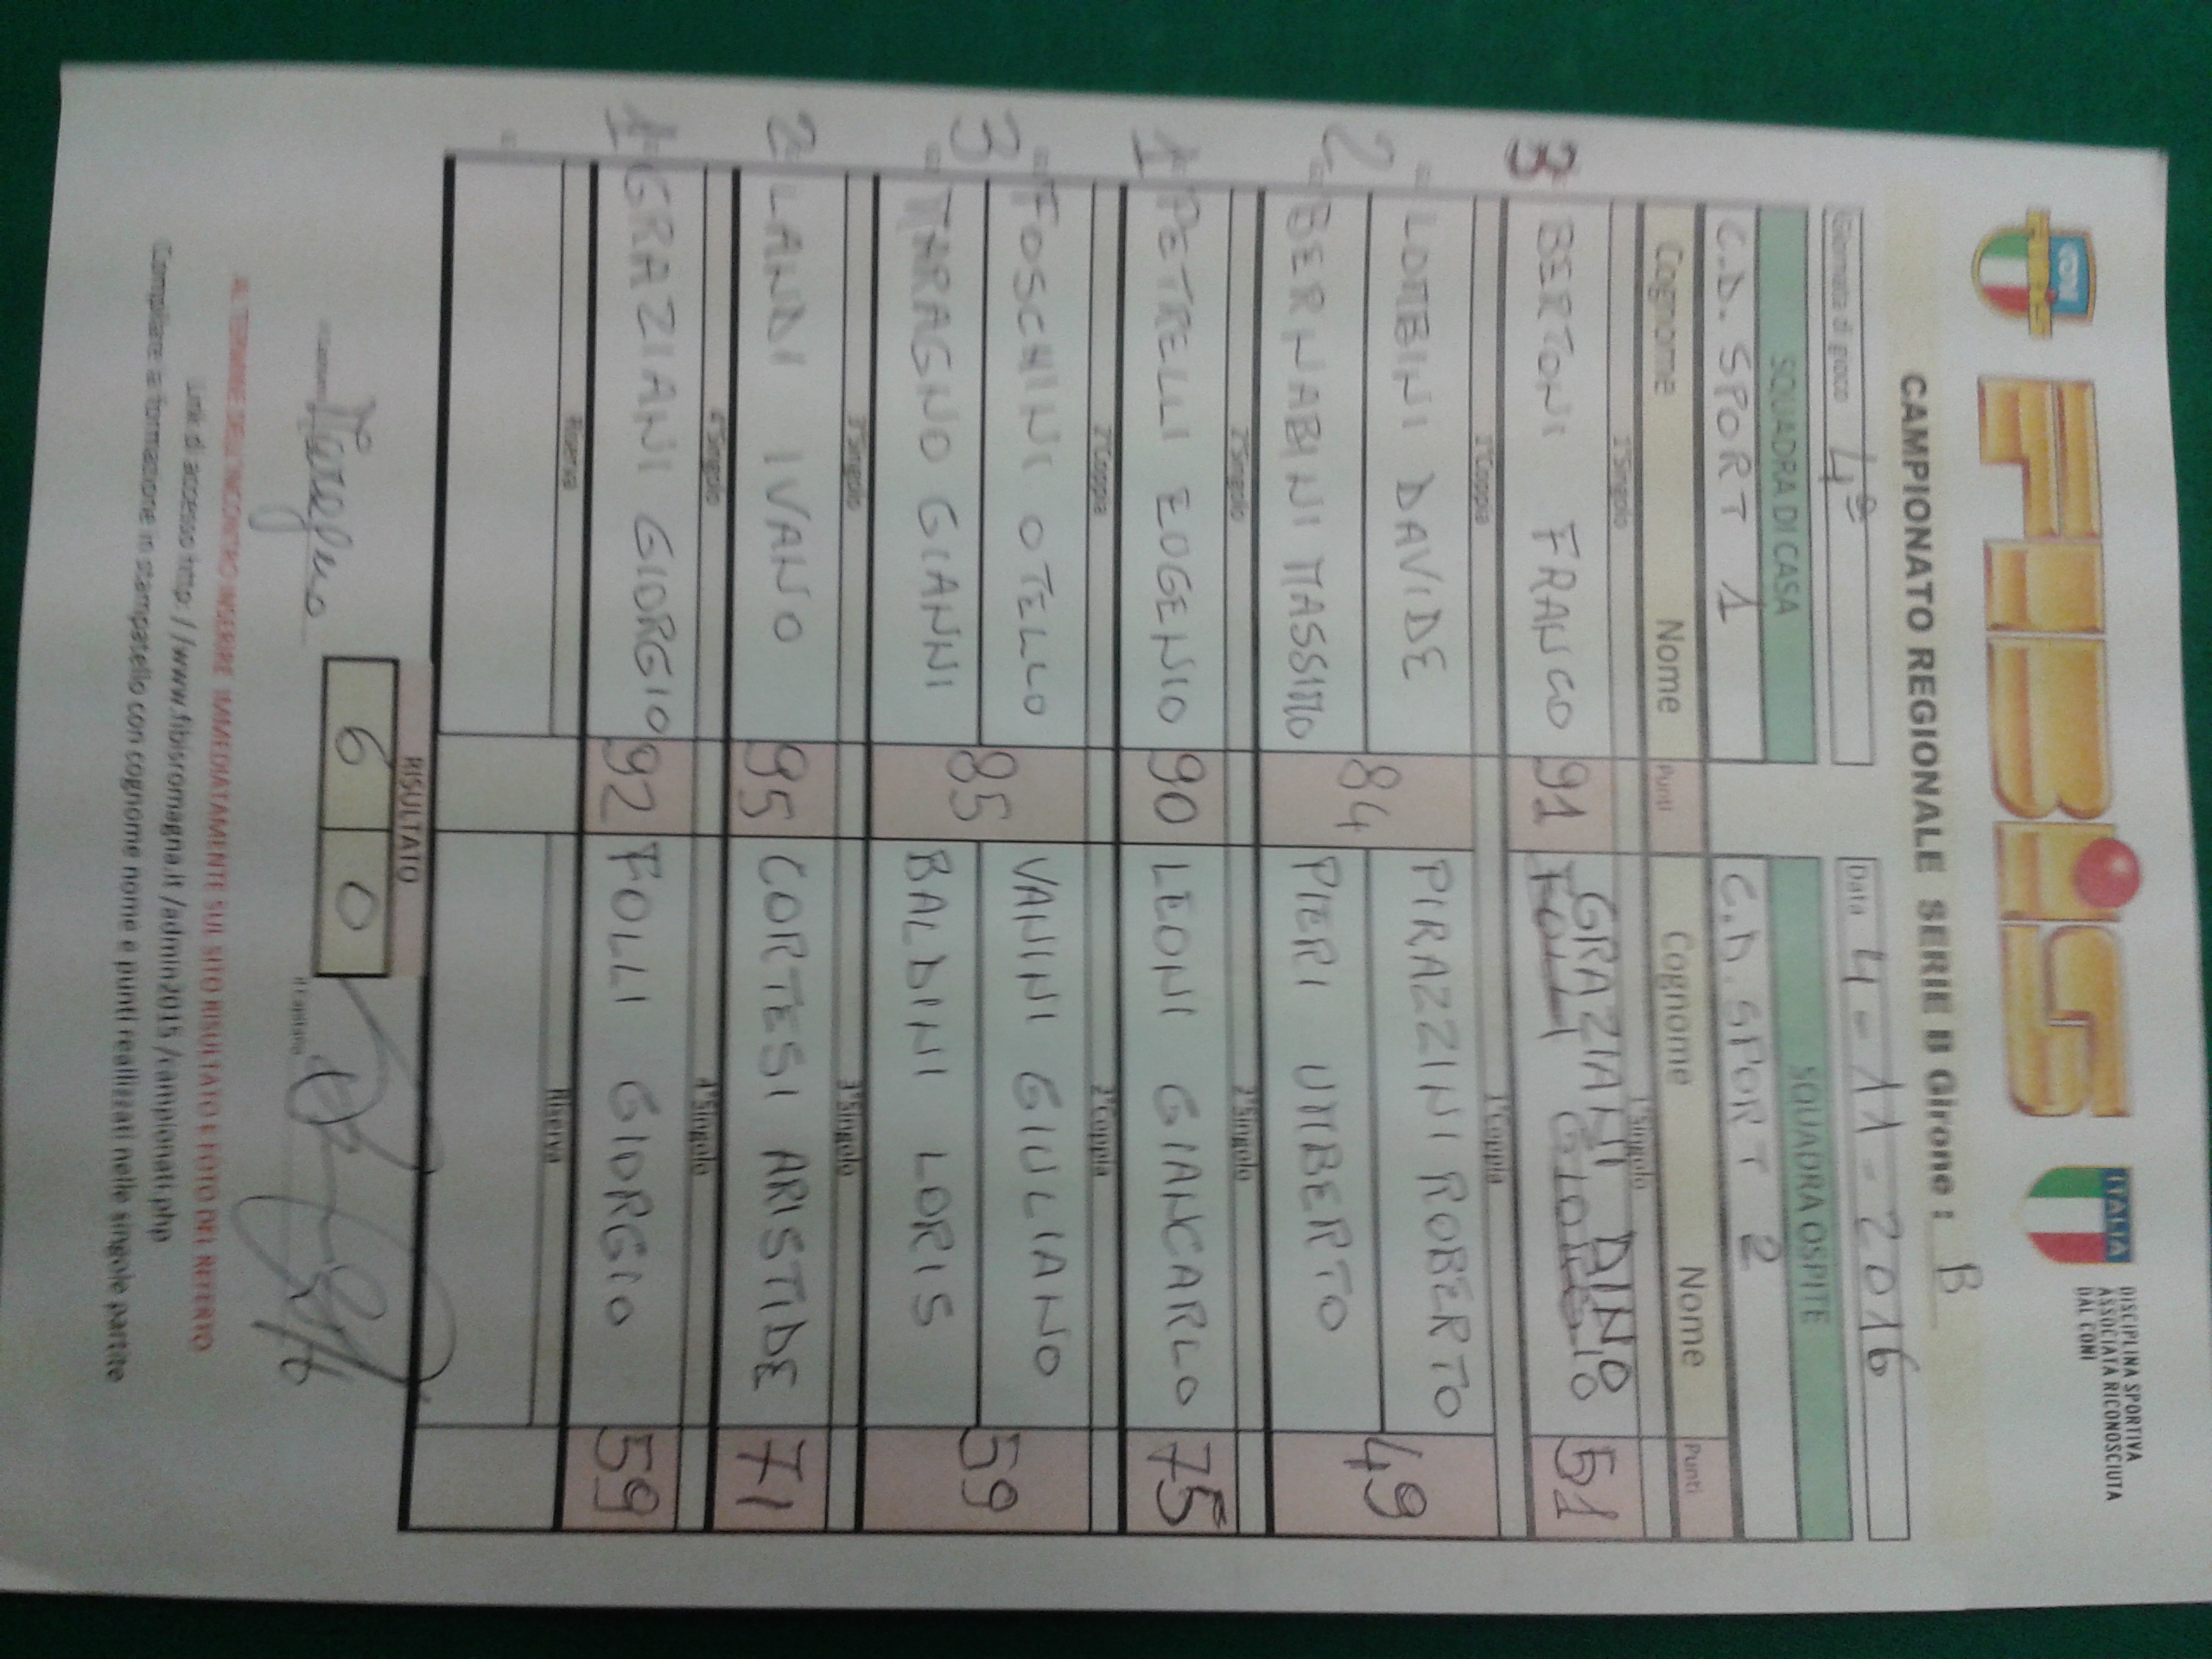 CONI
FIBiS
ITALIA
DISCIPLINA SPORTIVA
ASSOCIATA RICONOSCIUTA
DAL CONI
CAMPIONATO REGIONALE SERIE B Girone : B
Giornata di gioco 4° Data 4-11-2016
SQUADRA DI CASA SQUADRA OSPITE
C.D. SPORT 1 C.D. SPORT 2
Cognome Nome Punti Cognome Nome Punti
1°Singolo 1°Singolo
3 BERTONI FRANCO 91 GRAZIANI DINO 51
1°Coppia 1°Coppia
LOMBINI DAVIDE 84 PIRAZZINI ROBERTO 49
2 BERNABINI MASSIMO PIERI UMBERTO
2°Singolo 2°Singolo
1 PETRELLI EUGENIO 90 LEONI GIANCARLO 75
2°Coppia 2°Coppia
3 FOSCHINI OTELLO 85 VANINI GIULIANO 59
TARAGNO GIANNI BALDINI LORIS
3°Singolo 3°Singolo
2 LANDI IVANO 95 CORTESI ARISTIDE 71
4°Singolo 4°Singolo
1 GRAZIANI GIORGIO 92 FOLLI GIORGIO 59
Riserva Riserva
RISULTATO
6 0
Il capitano
AL TERMINE DELL'INCONTRO INSERIRE IMMEDIATAMENTE SUL SITO RISULTATO E FOTO DEL REFERTO
Link di accesso http://www.fibisromagna.it/admin2015/campionati.php
Compilare la formazione in stampatello con cognome nome e punti realizzati nelle singole partite